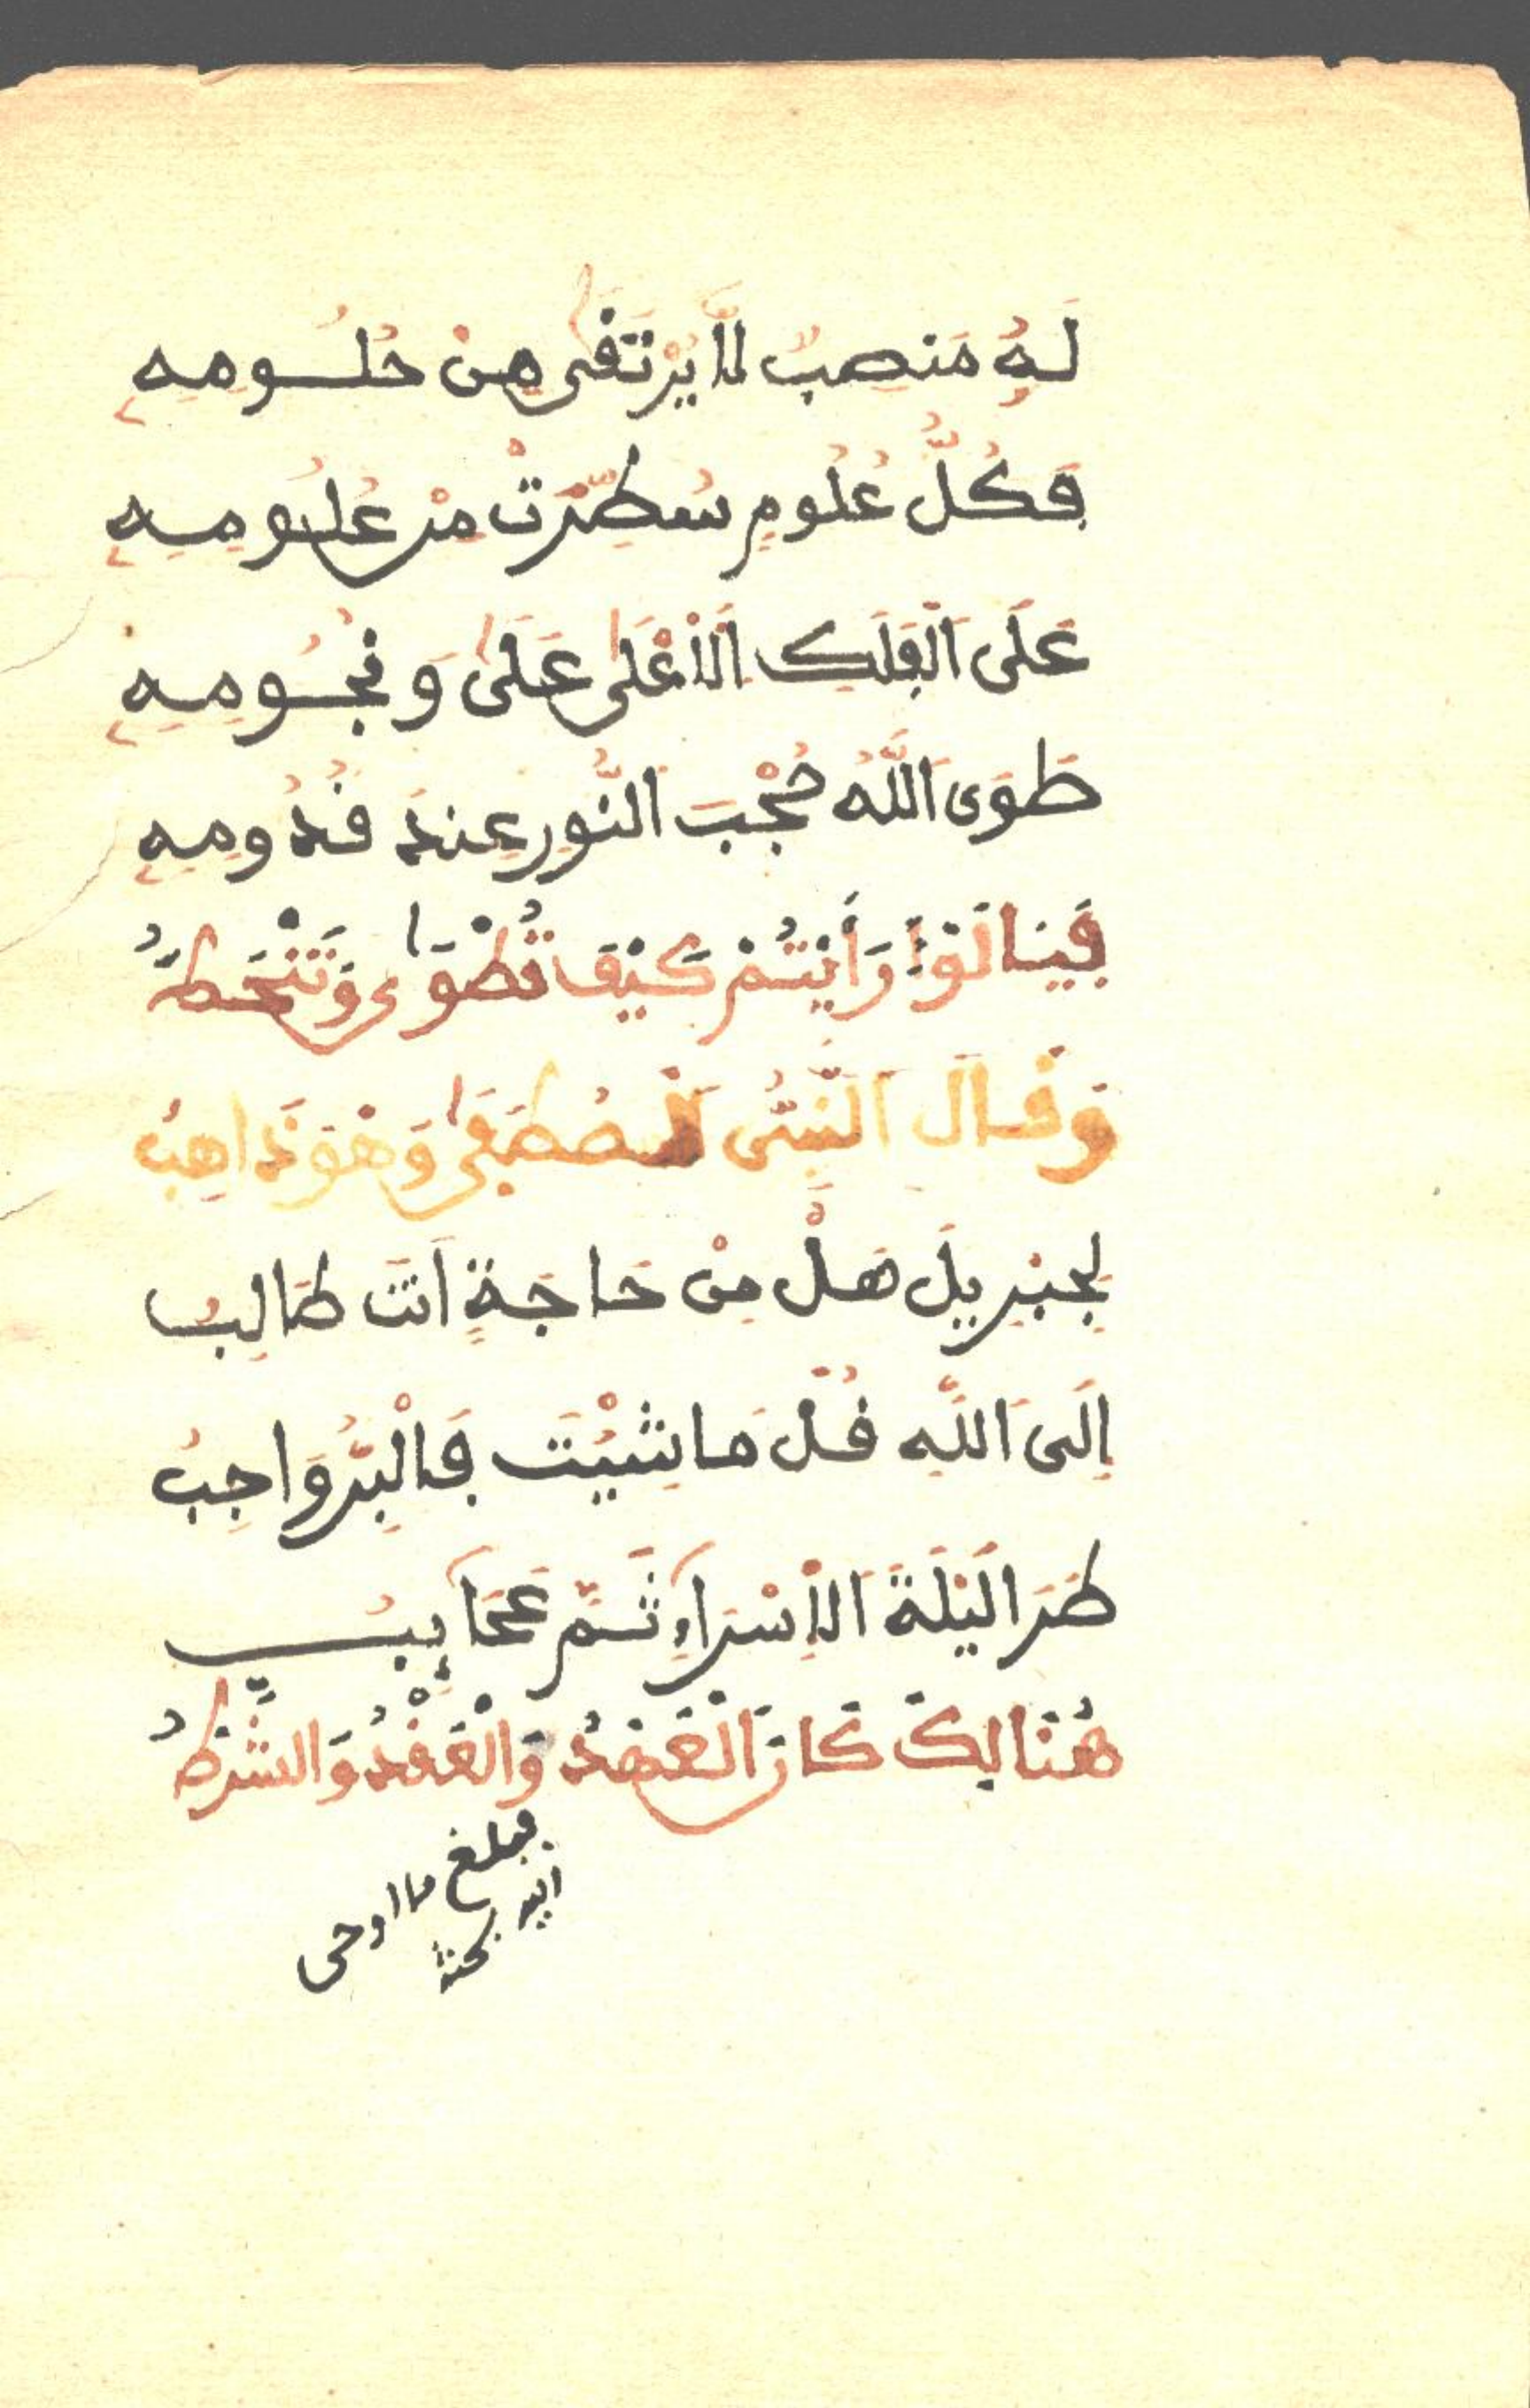 لَهُ مَنصِبٌ لَّا يُرْتَقَىٰ مِنْ حُلُومِهِ
فَكُلُّ عُلُومٍ سُطِّرَتْ مِنْ عُلُومِهِ
عَلَى الْفَلَكِ الْأَعْلَىٰ عَلَىٰ وَنُجُومِهِ
طَوَى اللَّهُ حُجْبَ النُّورِ عِندَ قُدُومِهِ
فَيَا لَوْ رَأَيْتُمْ كَيْفَ تُطْوَىٰ وَتَنْحَطُّ
وَقَالَ النَّبِىُّ الْمُصْطَفَىٰ وَهْوَ ذَاهِبُ
لِجِبْرِيلَ هَلْ مِنْ حَاجَةٍ اَنتَ طَالِبُ
إِلَى اللَّهِ قُلْ مَا شِيْتَ فَالْبِرُّ وَاجِبُ
طَرَا لَيْلَةَ الْإِسْرَاءِ ثَمَّ عَجَايِبُ
هُنَالِكَ كَانَ الْعَهْدُ وَالْعَقْدُ وَالشَّرْطُ
مبلغ ما اوحى